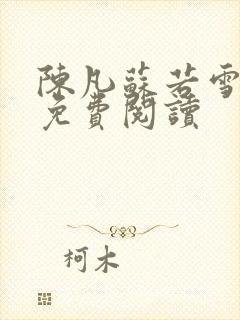 陳凡蘇若雪
免費閱讀
柯木